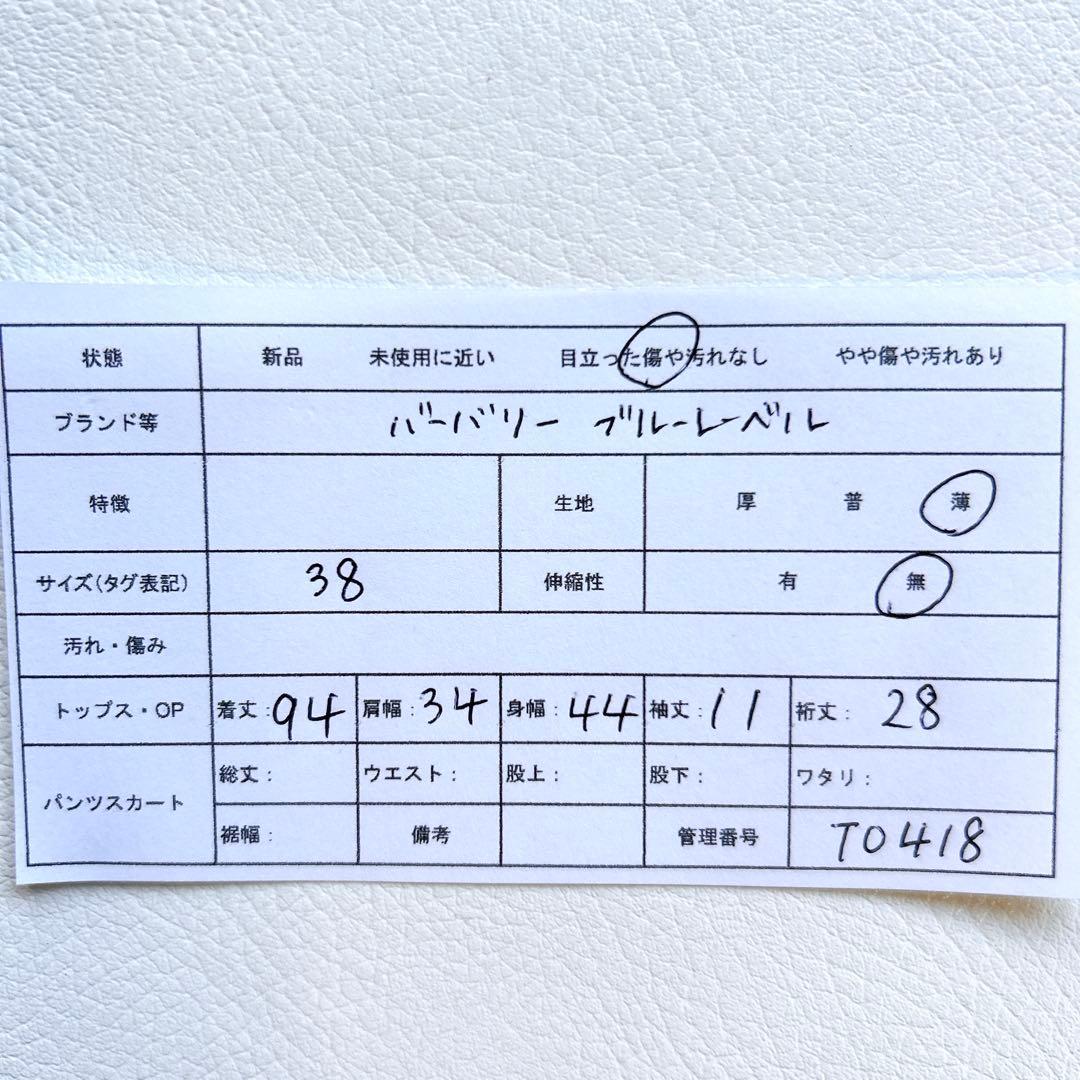 状態 新品 未使用に近い 目立った傷や汚れなし やや傷や汚れあり
ブランド等 バーバリー ブルーレーベル
特徴 生地 厚 普 薄
サイズ(タグ表記) 38 伸縮性 有 無
汚れ・傷み
トップス・OP 着丈:94 肩幅:34 身幅:44 袖丈:11 裄丈:28
パンツスカート 総丈: ウエスト: 股上: 股下: ワタリ:
裾幅: 備考 管理番号 T0418